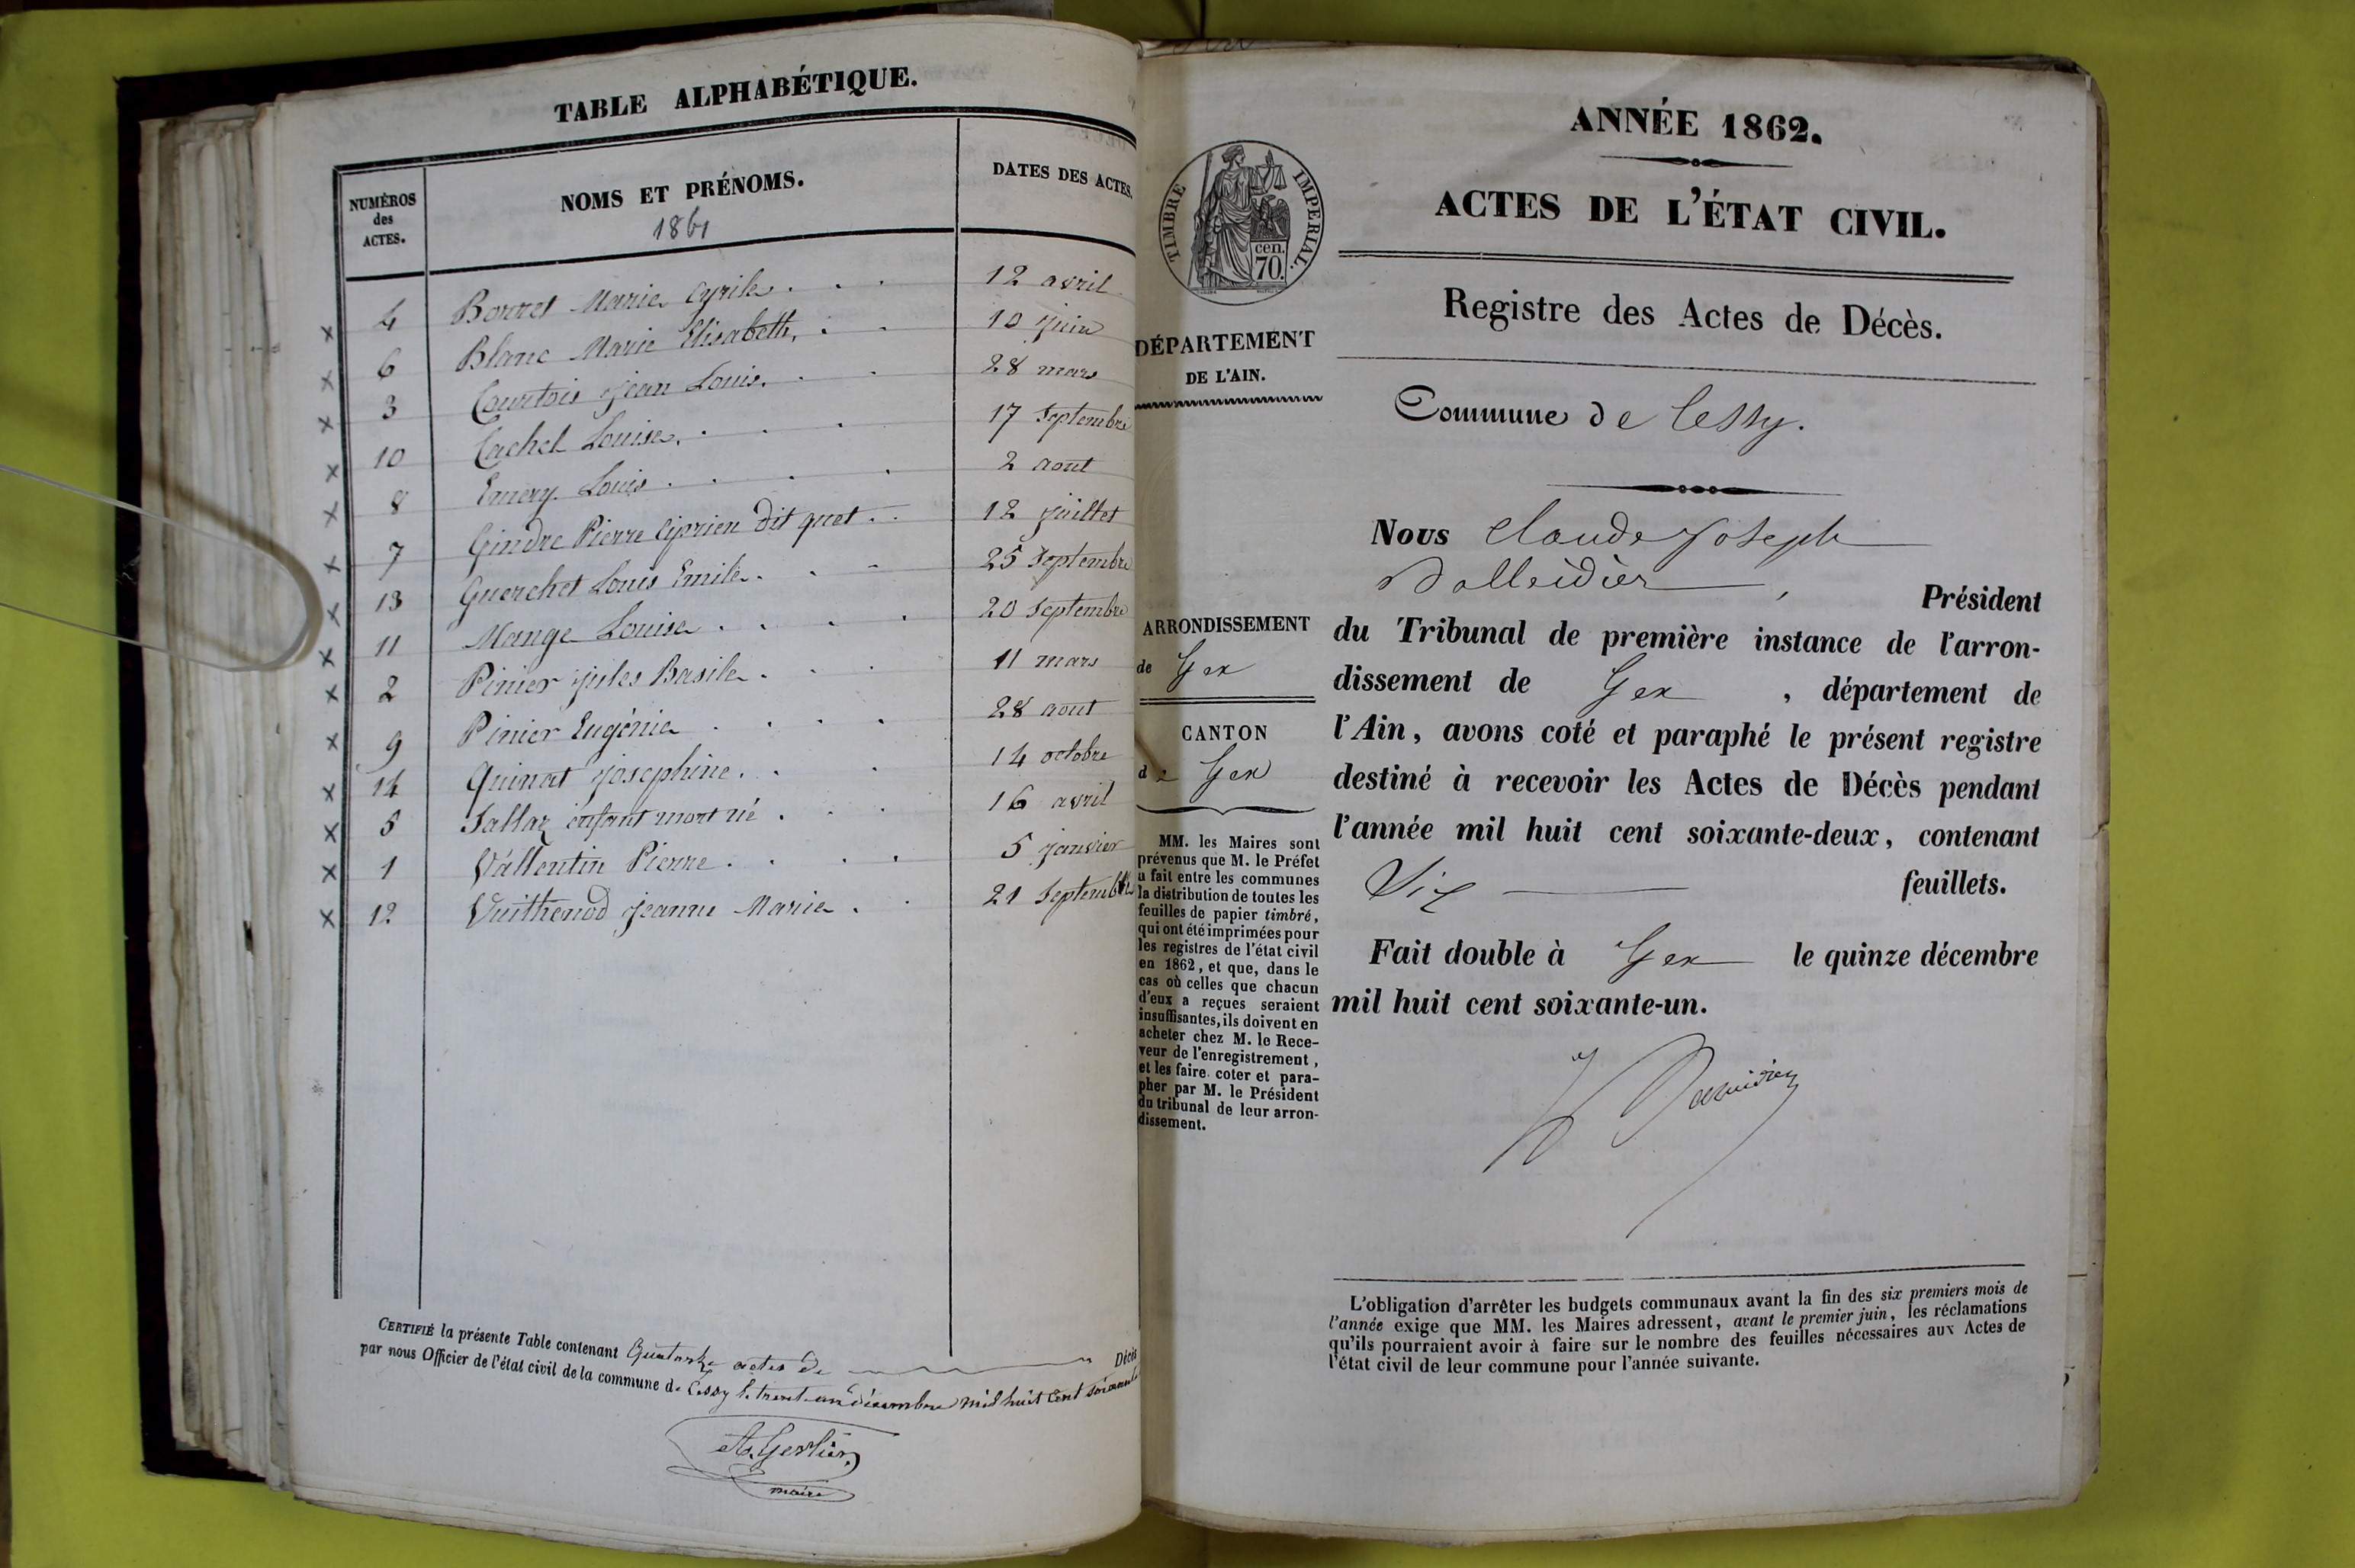 TABLE ALPHABÉTIQUE.
NUMÉROS des ACTES.
NOMS ET PRÉNOMS.
1861
DATES DES ACTES.
4 Bonnet Marie Cyrile . . . 12 avril
6 Blanc Marie Elisabeth, . . 10 juin
3 Courtois jean Louis. . . 28 mars
10 Cachel Louise. . . . 17 Septembre
8 Emery Louis . . . . 2 aout
7 Gindre Pierre Ciprien dit quet . . 12 juillet
13 Guerchet Louis Emile . . . 25 Septembre
11 Mange Louise . . . . 20 Septembre
2 Pinier jules Basile . . . 11 mars
9 Pinier Eugénie . . . . 28 aout
14 Quinat josephine . . . 14 octobre
5 Sallaz enfant mort né . . . 16 avril
1 Vallentin Pierre . . . . 5 janvier
12 Vuithenod jeanne Marie . . 21 Septembre
CERTIFIÉ la présente Table contenant Quatorze actes de Décès
par nous Officier de l'état civil de la commune de Cessy le trent-un décembre mil huit Cent soixante
A. Gerlier
maire
ANNÉE 1862.
TIMBRE IMPERIAL.
cen.
70.
ACTES DE L'ÉTAT CIVIL.
Registre des Actes de Décès.
DÉPARTEMENT
DE L'AIN.
Commune de Cessy.
Nous Claude Joseph
, Président
ARRONDISSEMENT
de Gex
du Tribunal de première instance de l'arron-
dissement de Gex , département de
CANTON
de Gex
l'Ain, avons coté et paraphé le présent registre
destiné à recevoir les Actes de Décès pendant
l'année mil huit cent soixante-deux, contenant
Six feuillets.
Fait double à Gex le quinze décembre
mil huit cent soixante-un.
MM. les Maires sont
prévenus que M. le Préfet
a fait entre les communes
la distribution de toutes les
feuilles de papier timbré,
qui ont été imprimées pour
les registres de l'état civil
en 1862, et que, dans le
cas où celles que chacun
d'eux a reçues seraient
insuffisantes, ils doivent en
acheter chez M. le Rece-
veur de l'enregistrement,
et les faire coter et para-
pher par M. le Président
du tribunal de leur arron-
dissement.
L'obligation d'arrêter les budgets communaux avant la fin des six premiers mois de
l'année exige que MM. les Maires adressent, avant le premier juin, les réclamations
qu'ils pourraient avoir à faire sur le nombre des feuilles nécessaires aux Actes de
l'état civil de leur commune pour l'année suivante.